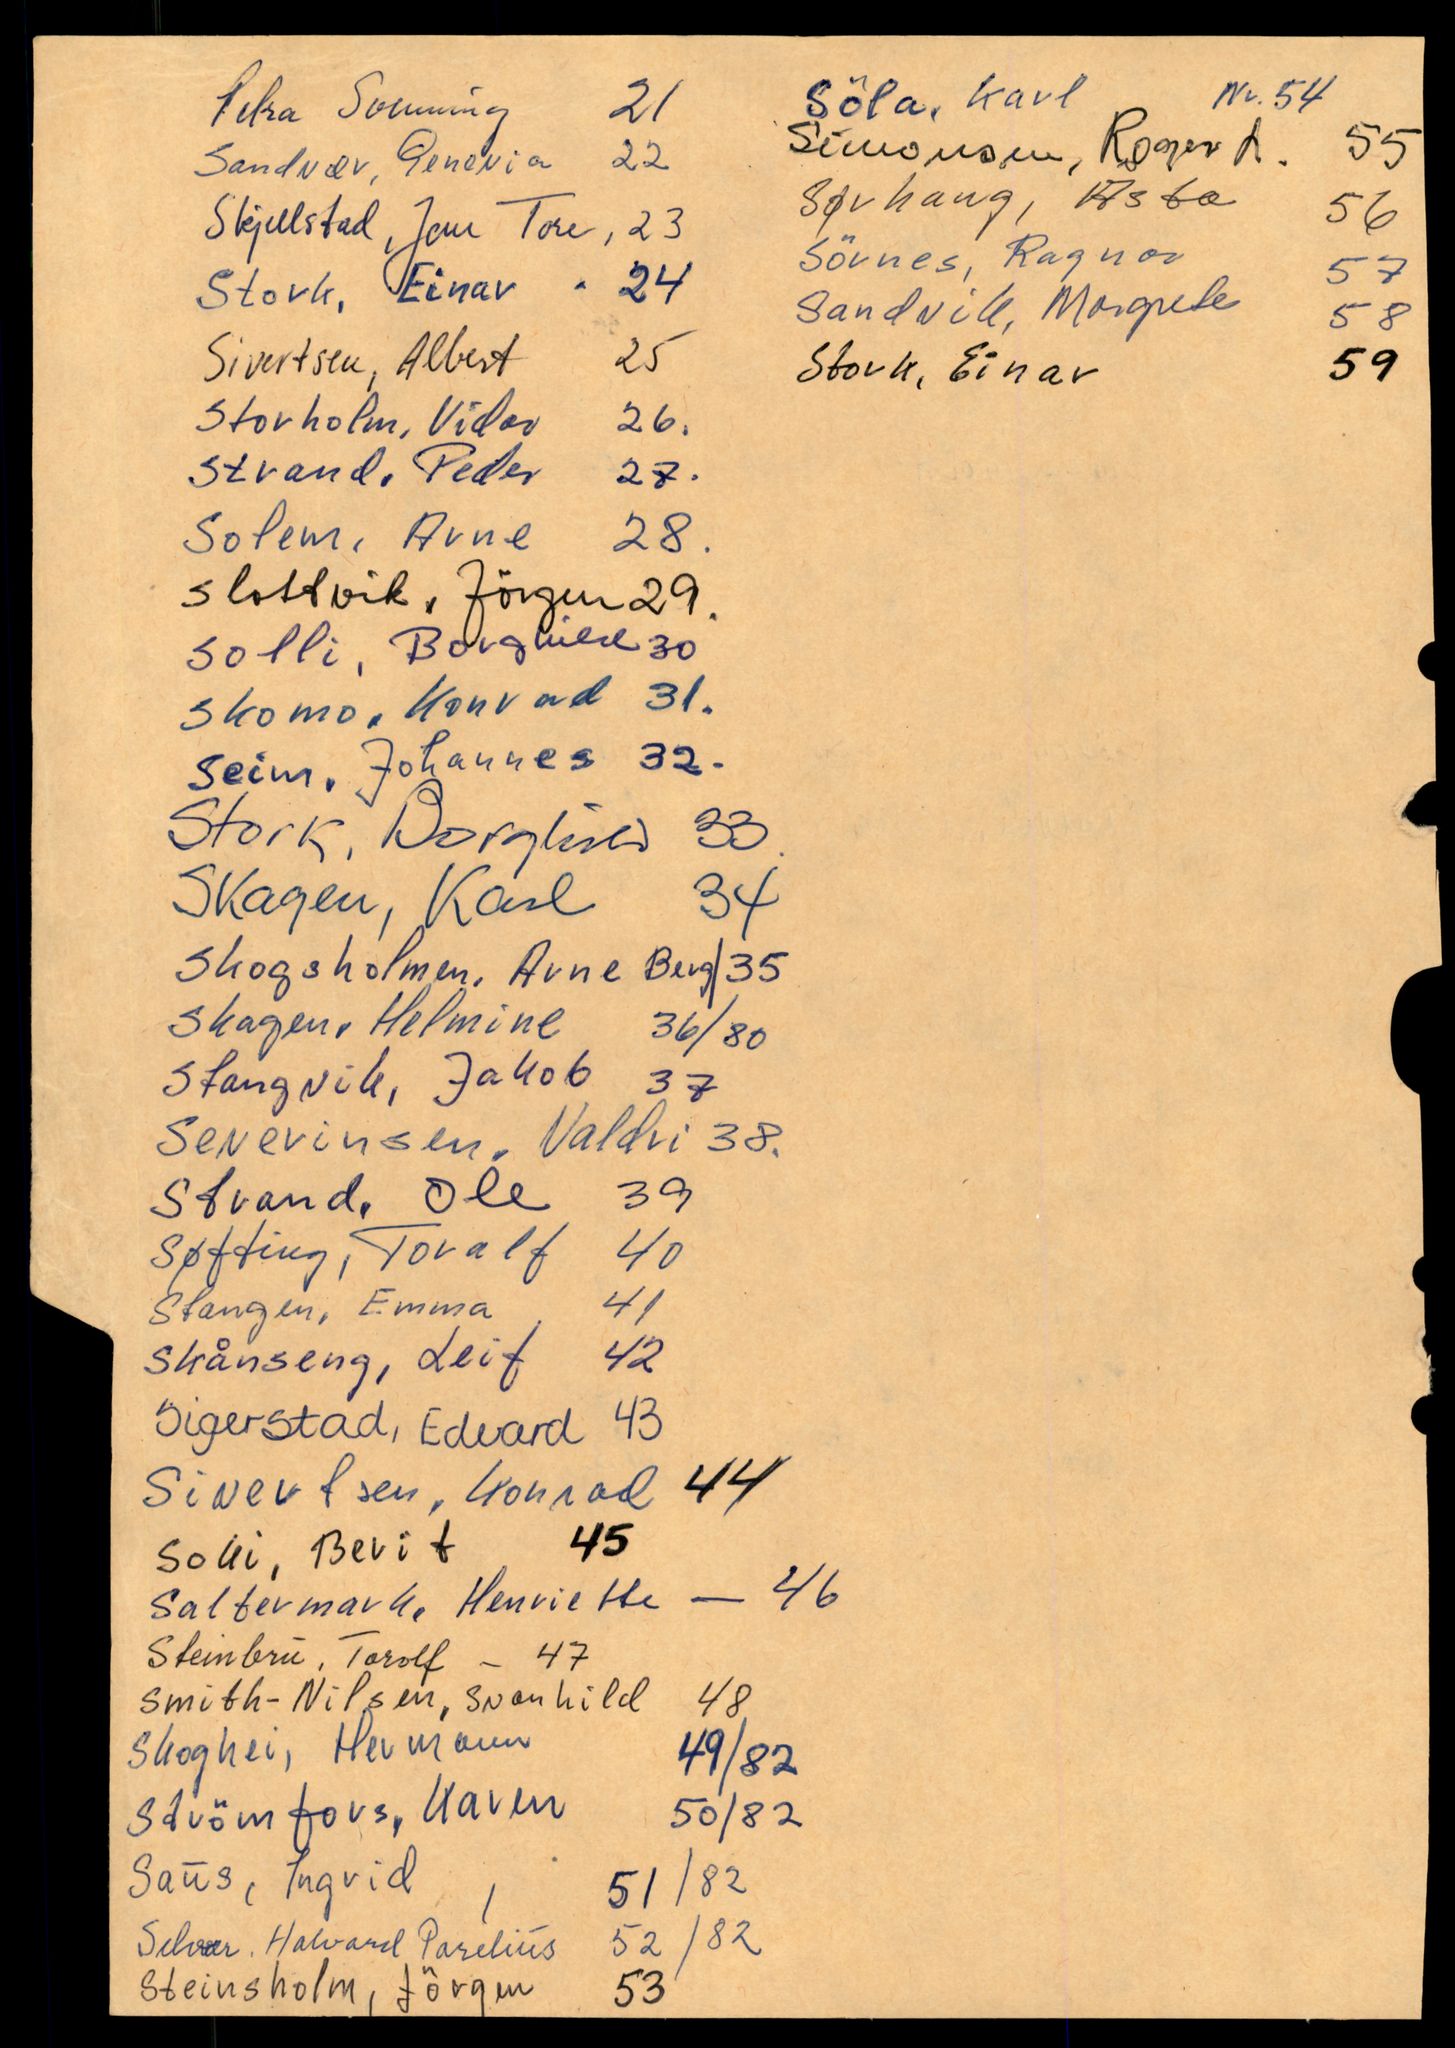 Petra Sommning 21
Sandvær, Genevia 22
Skjellstad, Jan Tore, 23
Stork, Einar . 24
Sivertsen, Albert 25
Storholm, Vidar 26.
Strand, Peder 27.
Solem, Arne 28.
Slottvik, Jörgen 29.
Solli, Borghild 30
Skomo, Konrad 31.
Seim, Johannes 32.
Stork, Borghild 33.
Skagen, Karl 34
Skogsholmen, Arne Berg/35
Skagen, Helmine 36/80
Stangvik, Jakob 37
Severinsen, Valdri 38.
Strand, Ole 39
Søfting, Toralf 40
Stangen, Emma 41
Skånseng, Leif 42
Sigerstad, Edvard 43
Sivertsen, Konrad 44
Solli, Berit 45
Saltermark, Henriette — 46
Steinbru, Torolf – 47
Smith-Nilsen, Svanhild 48
Skoghei, Hermann 49/82
Strömfors, Karen 50/82
Saus, Ingrid , 51/82
Selvær, Halvard Parelius 52/82
Steinsholm, Jörgen 53
Söla, Karl Nr. 54
Simonsen, Roger A. 55
Sørhaug, Asta 56
Sörnes, Ragnar 57
Sandvik, Margrete 58
Stork, Einar 59